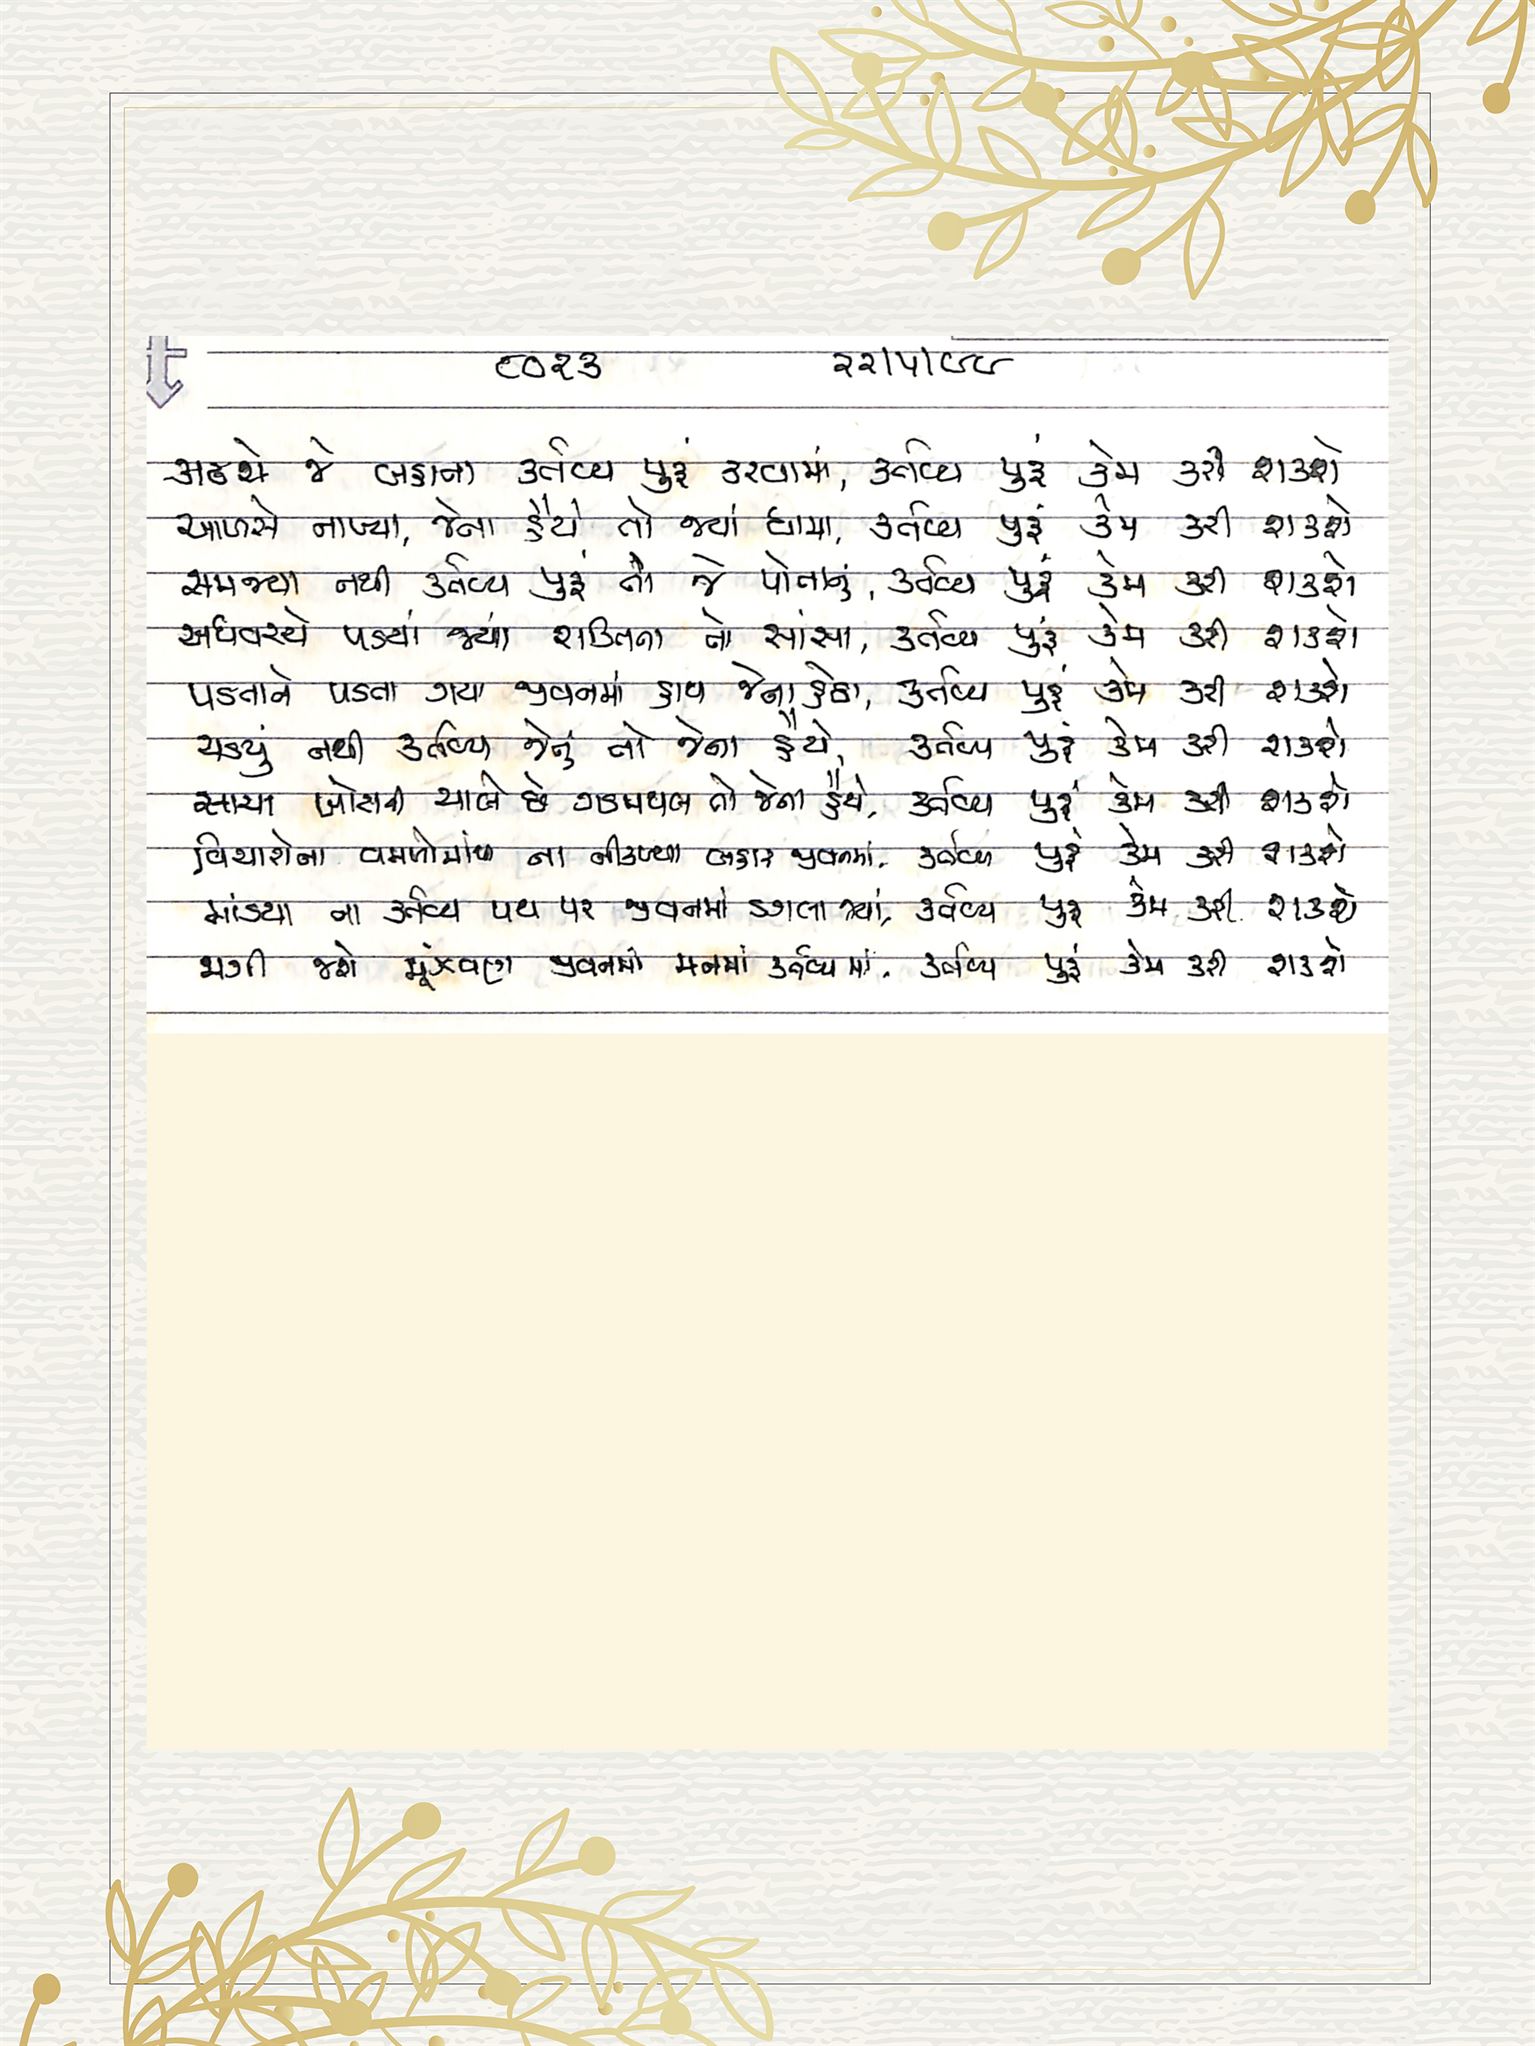 ૮૦૨૩ ૨૨/૫/૯૯
અટકશે જે બહાના કર્તવ્ય પુરૂં કરવામાં, કર્તવ્ય પુરૂં કેમ કરી શકશે
આળસે નાખ્યા, જેના હૈયે તો જ્યાં ધામા, કર્તવ્ય પુરૂં કેમ કરી શકશે
સમજ્યા નથી કર્તવ્ય પુરૂં તો જે પોતાનું, કર્તવ્ય પુરૂં કેમ કરી શકશે
અધવચ્ચે પડયાં જ્યાં શક્તિના તો સાંસા, કર્તવ્ય પુરૂં કેમ કરી શકશે
પડતાને પડતા ગયા જીવનમાં હાથ જેના હેઠા, કર્તવ્ય પુરૂં કેમ કરી શકશે
ચડયું નથી કર્તવ્ય જેનું તો જેના હૈયે, કર્તવ્ય પુરૂં કેમ કરી શકશે
સાચા ખોટાની ચાલે છે ગડમથલ તો જેના હૈયે, કર્તવ્ય પુરૂં કેમ કરી શકશે
વિચારોના વમળોમાંથી ના નીકળ્યા બહાર જીવનમાં, કર્તવ્ય પુરૂં કેમ કરી શકશે
માંડયા ના કર્તવ્ય પથ પર જીવનમાં ડગલા જ્યાં, કર્તવ્ય પુરૂ કેમ કરી શકશે
જાગી જશે મૂંઝવણ જીવનમાં મનમાં કર્તવ્યમાં, કર્તવ્ય પુરૂં કેમ કરી શકશે